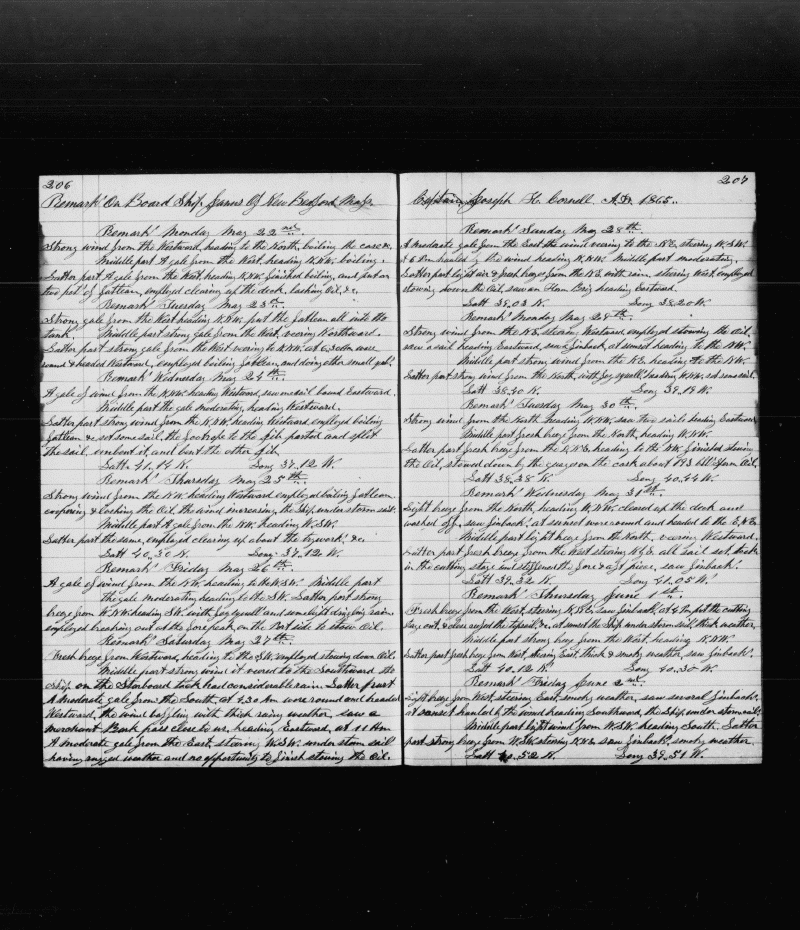 206
Remarks On Board Ship Janus Of New Bedford Mass.
Remarks Monday May 22nd
Strong wind from the Westward, heading to the North, boiling the case &c.
Middle part A gale from the West, heading N.NW. boiling.
Latter part A gale from the West, heading N.NW. finished boiling, and put on
two pots of fatlean, employed clearing up the deck, lashing Oil, &c.
Remarks Tuesday May 23rd.
Strong gale from the West heading N.NW. put the fatlean all into the
tank. Middle part strong gale from the West, veering Northward.
Latter part strong gale from the West veering to W.NW. at 6.30 Am wore
round & headed Westward, employed boiling fatlean, and doing other small jobs.
Remarks Wednesday May 24th.
A gale of wind from the N.NW. heading Westward, saw one sail bound Eastward.
Middle part the gale moderating, heading Westward.
Latter part strong wind from the N.NW. heading Westward employed boiling
fatlean &c set some sail, the footrope to the jib parted and split
the sail, unbent it, and bent the other jib.
Latt. 41.14 N. Long 37.12 W.
Remarks Thursday May 25th.
Strong wind from the NW. heading Westward employed boiling fatlean
coopering & lashing the Oil, the wind increasing, the Ship under storm sail.
Middle part A gale from the NW. heading W.SW.
Latter part the same, employed clearing up about the tryworks &c.
Latt 40.30 N. Long. 37.12 W.
Remarks Friday May 26th.
A gale of wind from the NW. heading to the W.SW. Middle part
the gale moderating heading to the SW. Latter part strong
breeze from W.NW. heading SW. with foggy squalls and some light drizzling rain,
employed breaking out at the forepeak on the Port side to stow Oil.
Remarks Saturday May 27th.
Fresh breeze from Westward, heading to the SW. employed stowing down Oil.
Middle part strong wind it veered to the Southward the
Ship on the Starboard tack had considerable rain. Latter part
A moderate gale from the South, at 9.30 Am wore round and headed
Westward, the wind baffling with thick rainy weather, saw a
merchant Bark pass close to us, heading Eastward, at 11 Am
A moderate gale from the East, steering W.SW. under storm sail
having rugged weather and no opportunity to finish stowing the Oil.
207
Captain Joseph H. Cornell A.D. 1865.
Remarks Sunday May 28th.
A moderate gale from the East the wind veering to the N.E, steering W.SW.
at 6 Pm hauled by the wind heading N.NW. Middle part moderating.
Latter part light air & fresh breezes from the N.E. with rain, steering West, employed
stowing down the Oil, saw an Ham Brig heading Eastward.
Latt 38.03 N. Long 38.20 W.
Remarks Monday May 29th.
Strong wind from the N.E. steering Westward employed stowing the Oil,
saw a sail heading Eastward, saw finback, at sunset heading to the NW.
Middle part strong wind from the N.E. heading to the NW.
Latter part strong wind from the North, with foggy squalls, heading W.NW. set some sail.
Latt 38.40 N. Long 39.19 W.
Remarks Tuesday May 30th.
Strong wind from the North heading W.NW. saw two sails heading Eastward
Middle part fresh breeze from the North, heading W.NW.
Latter part fresh breeze from the N.NE. heading to the NW. finished stowing
the Oil, stowed down by the guage on the cask about 193 bbls Spm Oil.
Latt 38.38 N. Long 40.44 W.
Remarks Wednesday May 31st.
Light breeze from the North, heading W.NW. cleared up the deck and
washed off, saw finbacks, at sunset wore round and headed to the E.NE.
Middle part light breeze from the North, veering Westward.
Latter part fresh breeze from the West steering N.E. all sail set, took
in the cutting stage and stiffened the fore & aft piece, saw finbacks.
Latt 39.32 N. Long 41.05 W.
Remarks Thursday June 1st.
Fresh breeze from the West, steering N.N.E. saw finbacks, at 4 Pm put the cutting
stage out, & cleared off the topsails, &c. at sunset the Ship under storm sail, thick weather,
Middle part strong breeze from the West heading N.NW.
Latter part fresh breeze from West, steering East, thick & smoky weather, saw finbacks.
Latt 40.12 N. Long 40.30 W.
Remarks Friday June 2nd.
Light breeze from West steering East, smoky weather, saw several finbacks,
at sunset hauled by the wind heading Southward, the Ship under storm sail.
Middle part light wind from W.SW. heading South. Latter
part strong breeze from W.SW. steering N.NE. saw finbacks, smoky weather
Latt 40.52 N. Long 39.51 W.